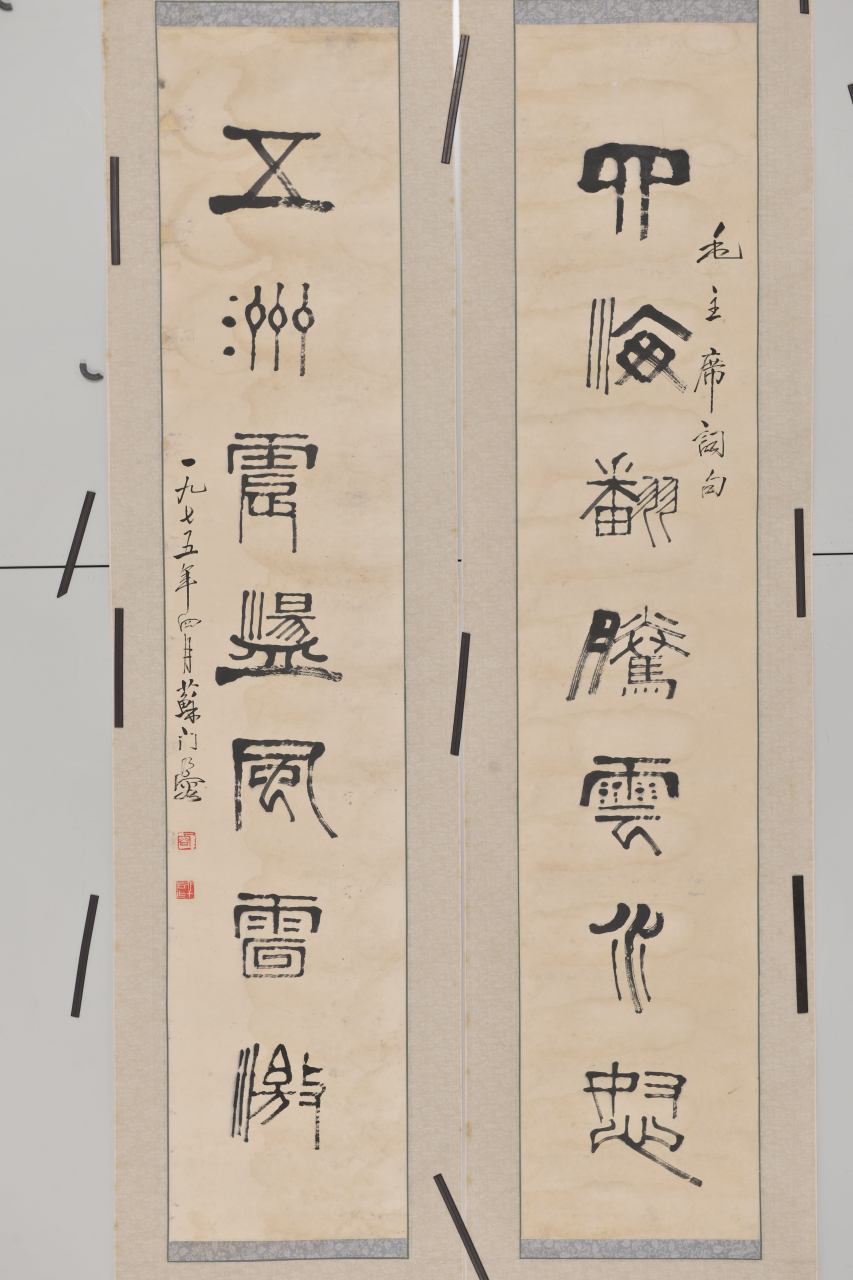 毛主席詞句
四海翻騰雲水怒
五洲震盪風雷激
一九七五年四月蘇门